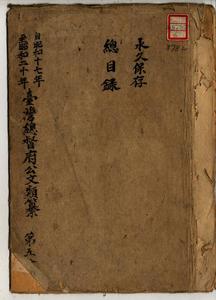 永久保存
總目錄
自昭和十七年
至昭和二十年
臺灣總督府公文類纂